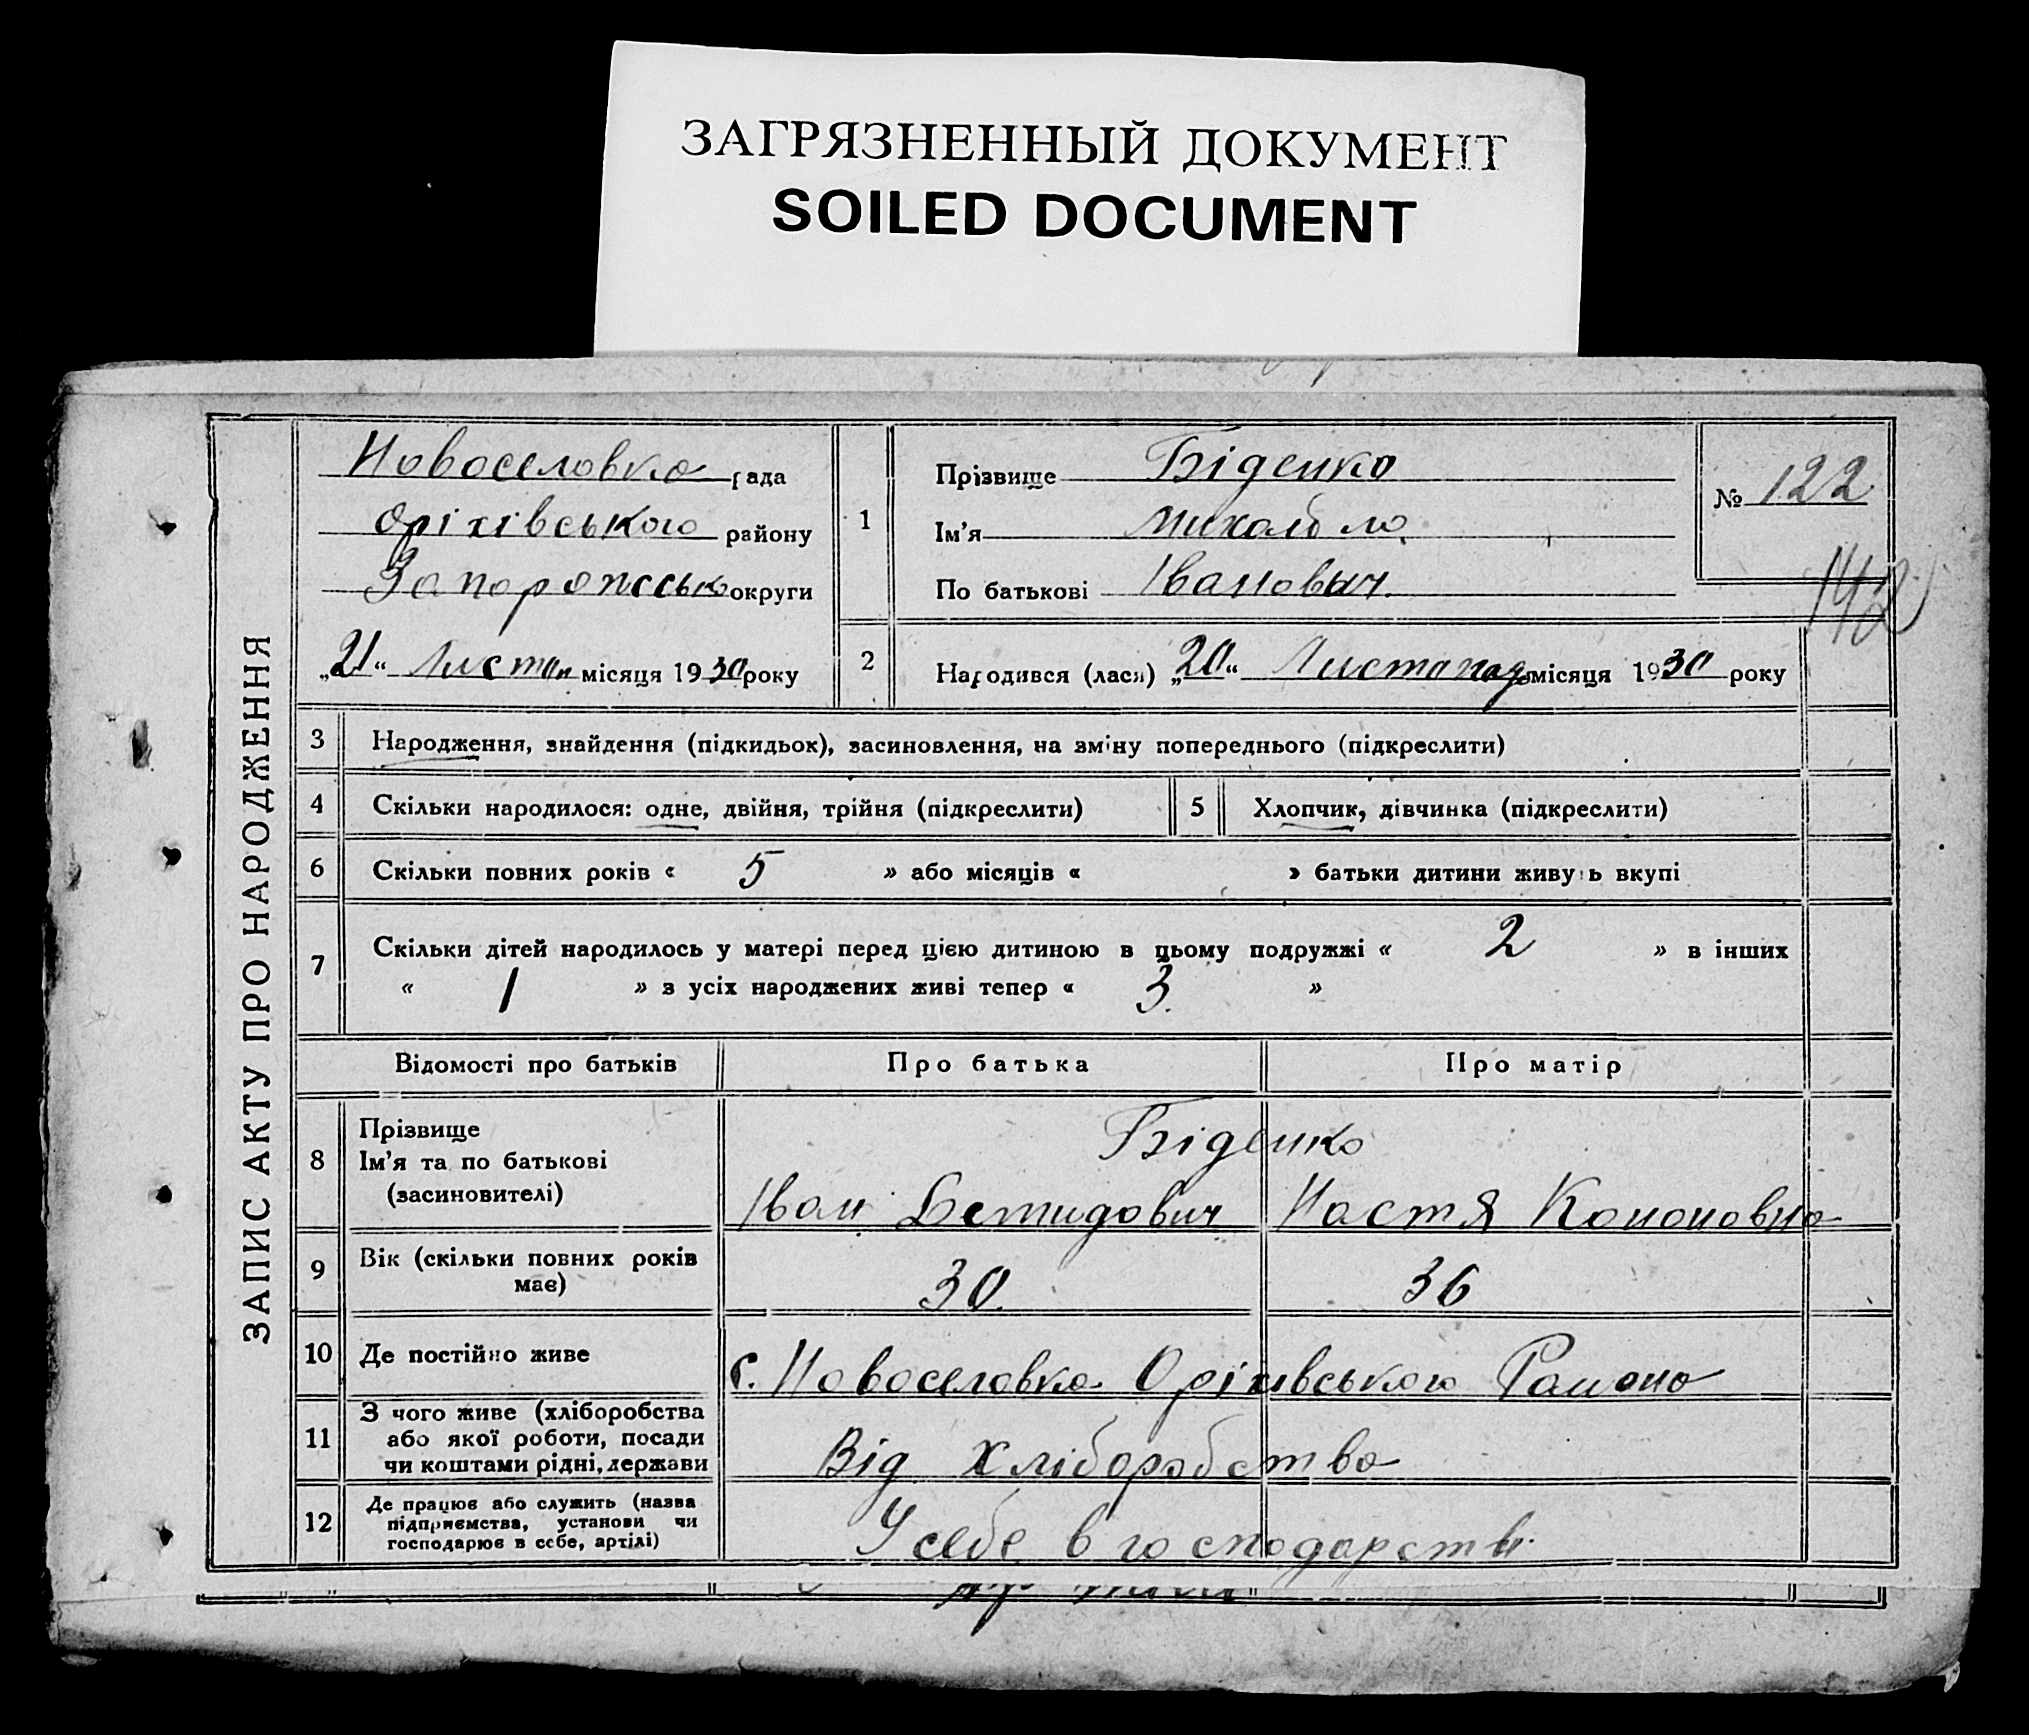 ЗАГРЯЗНЕННЫЙ ДОКУМЕНТ
SOILED DOCUMENT
ЗАПИС АКТУ ПРО НАРОДЖЕННЯ
Новоселовка рада
Оріхівського району
Запорожсько округи
„21“ Листоп місяця 1930 року
1
Прізвище Біденко
Ім'я Михайло
По батькові Іванович
№ 122
142
2
Народився (лася) „20“ Листопадо місяця 1930 року
3 Народження, знайдення (підкидьок), засиновлення, на зміну попереднього (підкреслити)
4 Скільки народилося: одне, двійня, трійня (підкреслити)
5 Хлопчик, дівчинка (підкреслити)
6 Скільки повних років « 5 » або місяців « » батьки дитини живуть вкупі
7 Скільки дітей народилось у матері перед цією дитиною в цьому подружжі « 2 » в інших
« 1 » з усіх народжених живі тепер « 3. »
Відомості про батьків Про батька Про матір
8 Прізвище
Ім'я та по батькові
(засиновителі)
Біденко
Іван Демидович Настя Кононовна
9 Вік (скільки повних років
має)
30. 36
10 Де постійно живе
с. Новоселовка Оріхівського Району
11 З чого живе (хліборобства
або якої роботи, посади
чи коштами рідні, держави
Від хліборобства
12 Де працює або служить (назва
підприємства, установи чи
господарює в себе, артілі)
У себе в господарстві